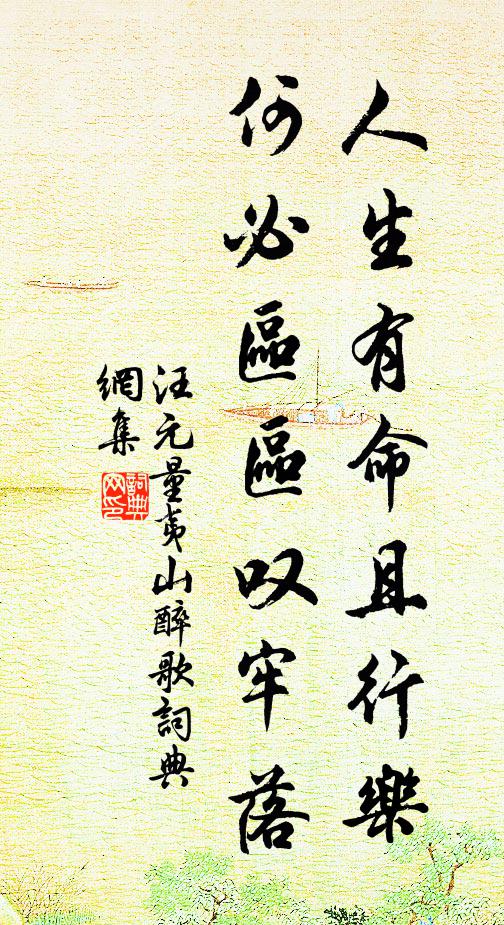 人生有命且行樂
何必區區叹牢落
汪元量夷山醉歌詞典
網集
詞典
网印